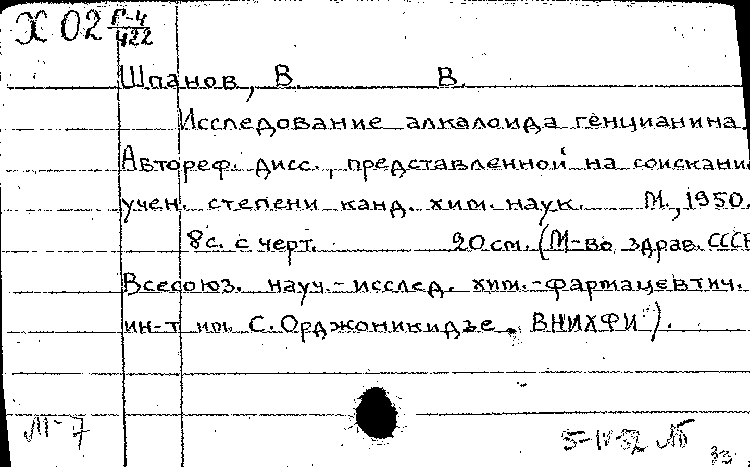 X 02 Г-4/422
Шпанов, В. В.
Исследование алкалоида генцианина.
Автореф. дисс., представленной на соискани
учен. степени канд. хим. наук. М., 1950.
8 с. с черт. 20 см. (М-во здрав. СССР
Всесоюз. науч.-исслед. хим.-фармацевтич.
ин-т им. С. Орджоникидзе. ВНИХФИ).
М-7
5-IV-52
33